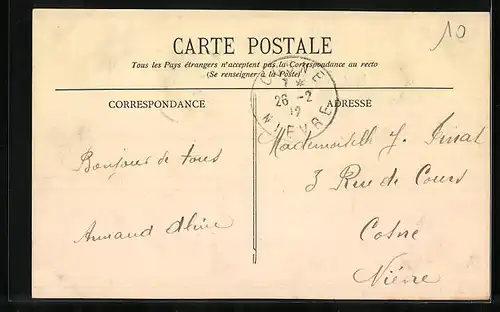 10
CARTE POSTALE
Tous les Pays étrangers n'acceptent pas la Correspondance au recto
(Se renseigner à la Poste)
CORRESPONDANCE
ADRESSE
26 -2
NIEVRE
Bonjour de tous
Armand Aline
Mademoiselle J.
3 Rue de Cours
Cosne
Nièvre